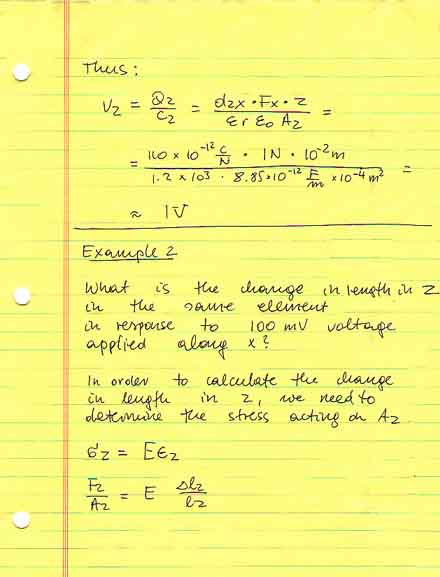 Thus:
V₂ = Q₂/C₂ = d₂x · Fx · z / εr ε₀ A₂ =
= 110 × 10⁻¹² C/N · 1N · 10⁻² m / 1.2 × 10³ · 8.85×10⁻¹² F/m × 10⁻⁴ m² =
≈ 1V
Example 2
What is the change in length in z
in the same element
in response to 100 mV voltage
applied along x?
In order to calculate the change
in length in z, we need to
determine the stress acting on A₂
σz = Eεz
Fz/Az = E Δlz/lz